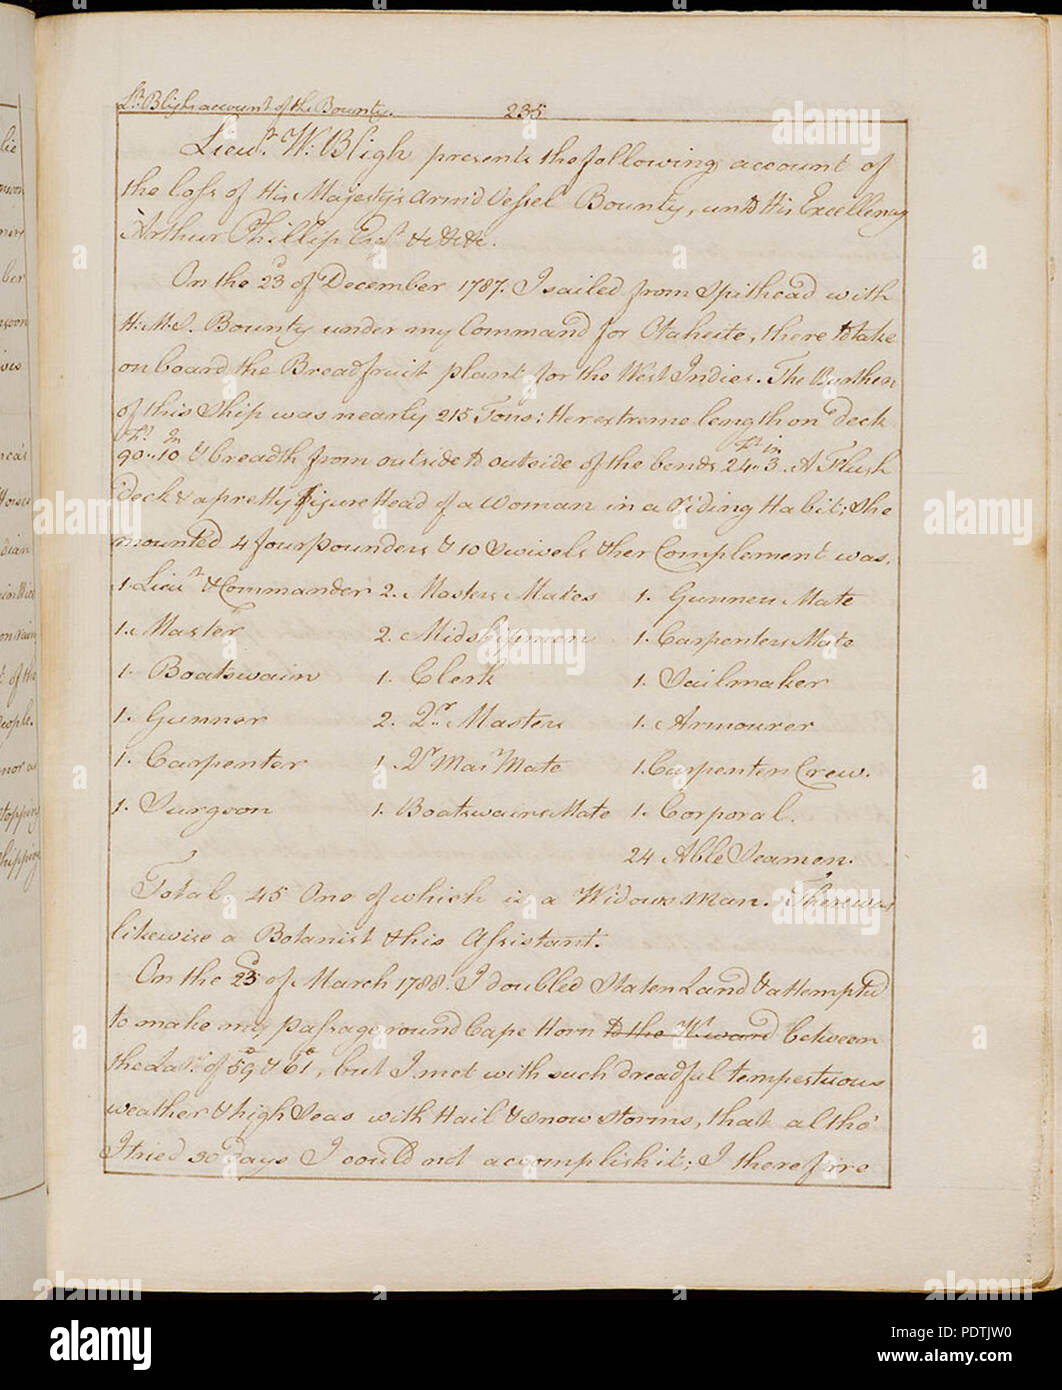 Lt. Bligh account of the Bounty. 235
Lieut. W: Bligh presents the following account of
the loss of His Majesty's Armd Vessel Bounty, unto His Excellency
Arthur Phillip Esqr. &c &c &c.
On the 23d of December 1787. I sailed from Spithead with
H.M.S. Bounty under my Command for Otaheite, there to take
on board the Breadfruit plant for the West Indies. The Burthen
of this Ship was nearly 215 Tons; Her extreme length on deck
Ft. In Ft. in
90..10 & breadth from outside to outside of the bends 24..3. A Flush
deck & a pretty figure Head of a Woman in a riding Habit; She
mounted 4 four pounders & 10 Swivels & her Complement was.
1. Lieut. & Commander 2. Masters Mates 1. Gunners Mate
1. Master 2. Midshipmen 1. Carpenters Mate
1. Boatswain 1. Clerk 1. Sailmaker
1. Gunner 2. Qr. Masters 1. Armourer
1. Carpenter 1. Qr Mas. Mate 1. Carpenters Crew.
1. Surgeon 1. Boatswains Mate 1. Corporal.
24 Able Seamen.
Total 45 One of which is a Widows Man. There was
likewise a Botanist & his Assistant.
On the 23d of March 1788. I doubled Staten Land & attempted
to make my passage round Cape Horn to the Wt.ward between
the Lat. of 59° & 61°, but I met with such dreadful tempestuous
weather & high Seas with Hail & snow storms, that altho'
I tried 30 days I could not accomplish it; I therefore
lie
ber
people.
stopping
shipping
alamy
a
alamy
Image ID: PDTJW0
www.alamy.com